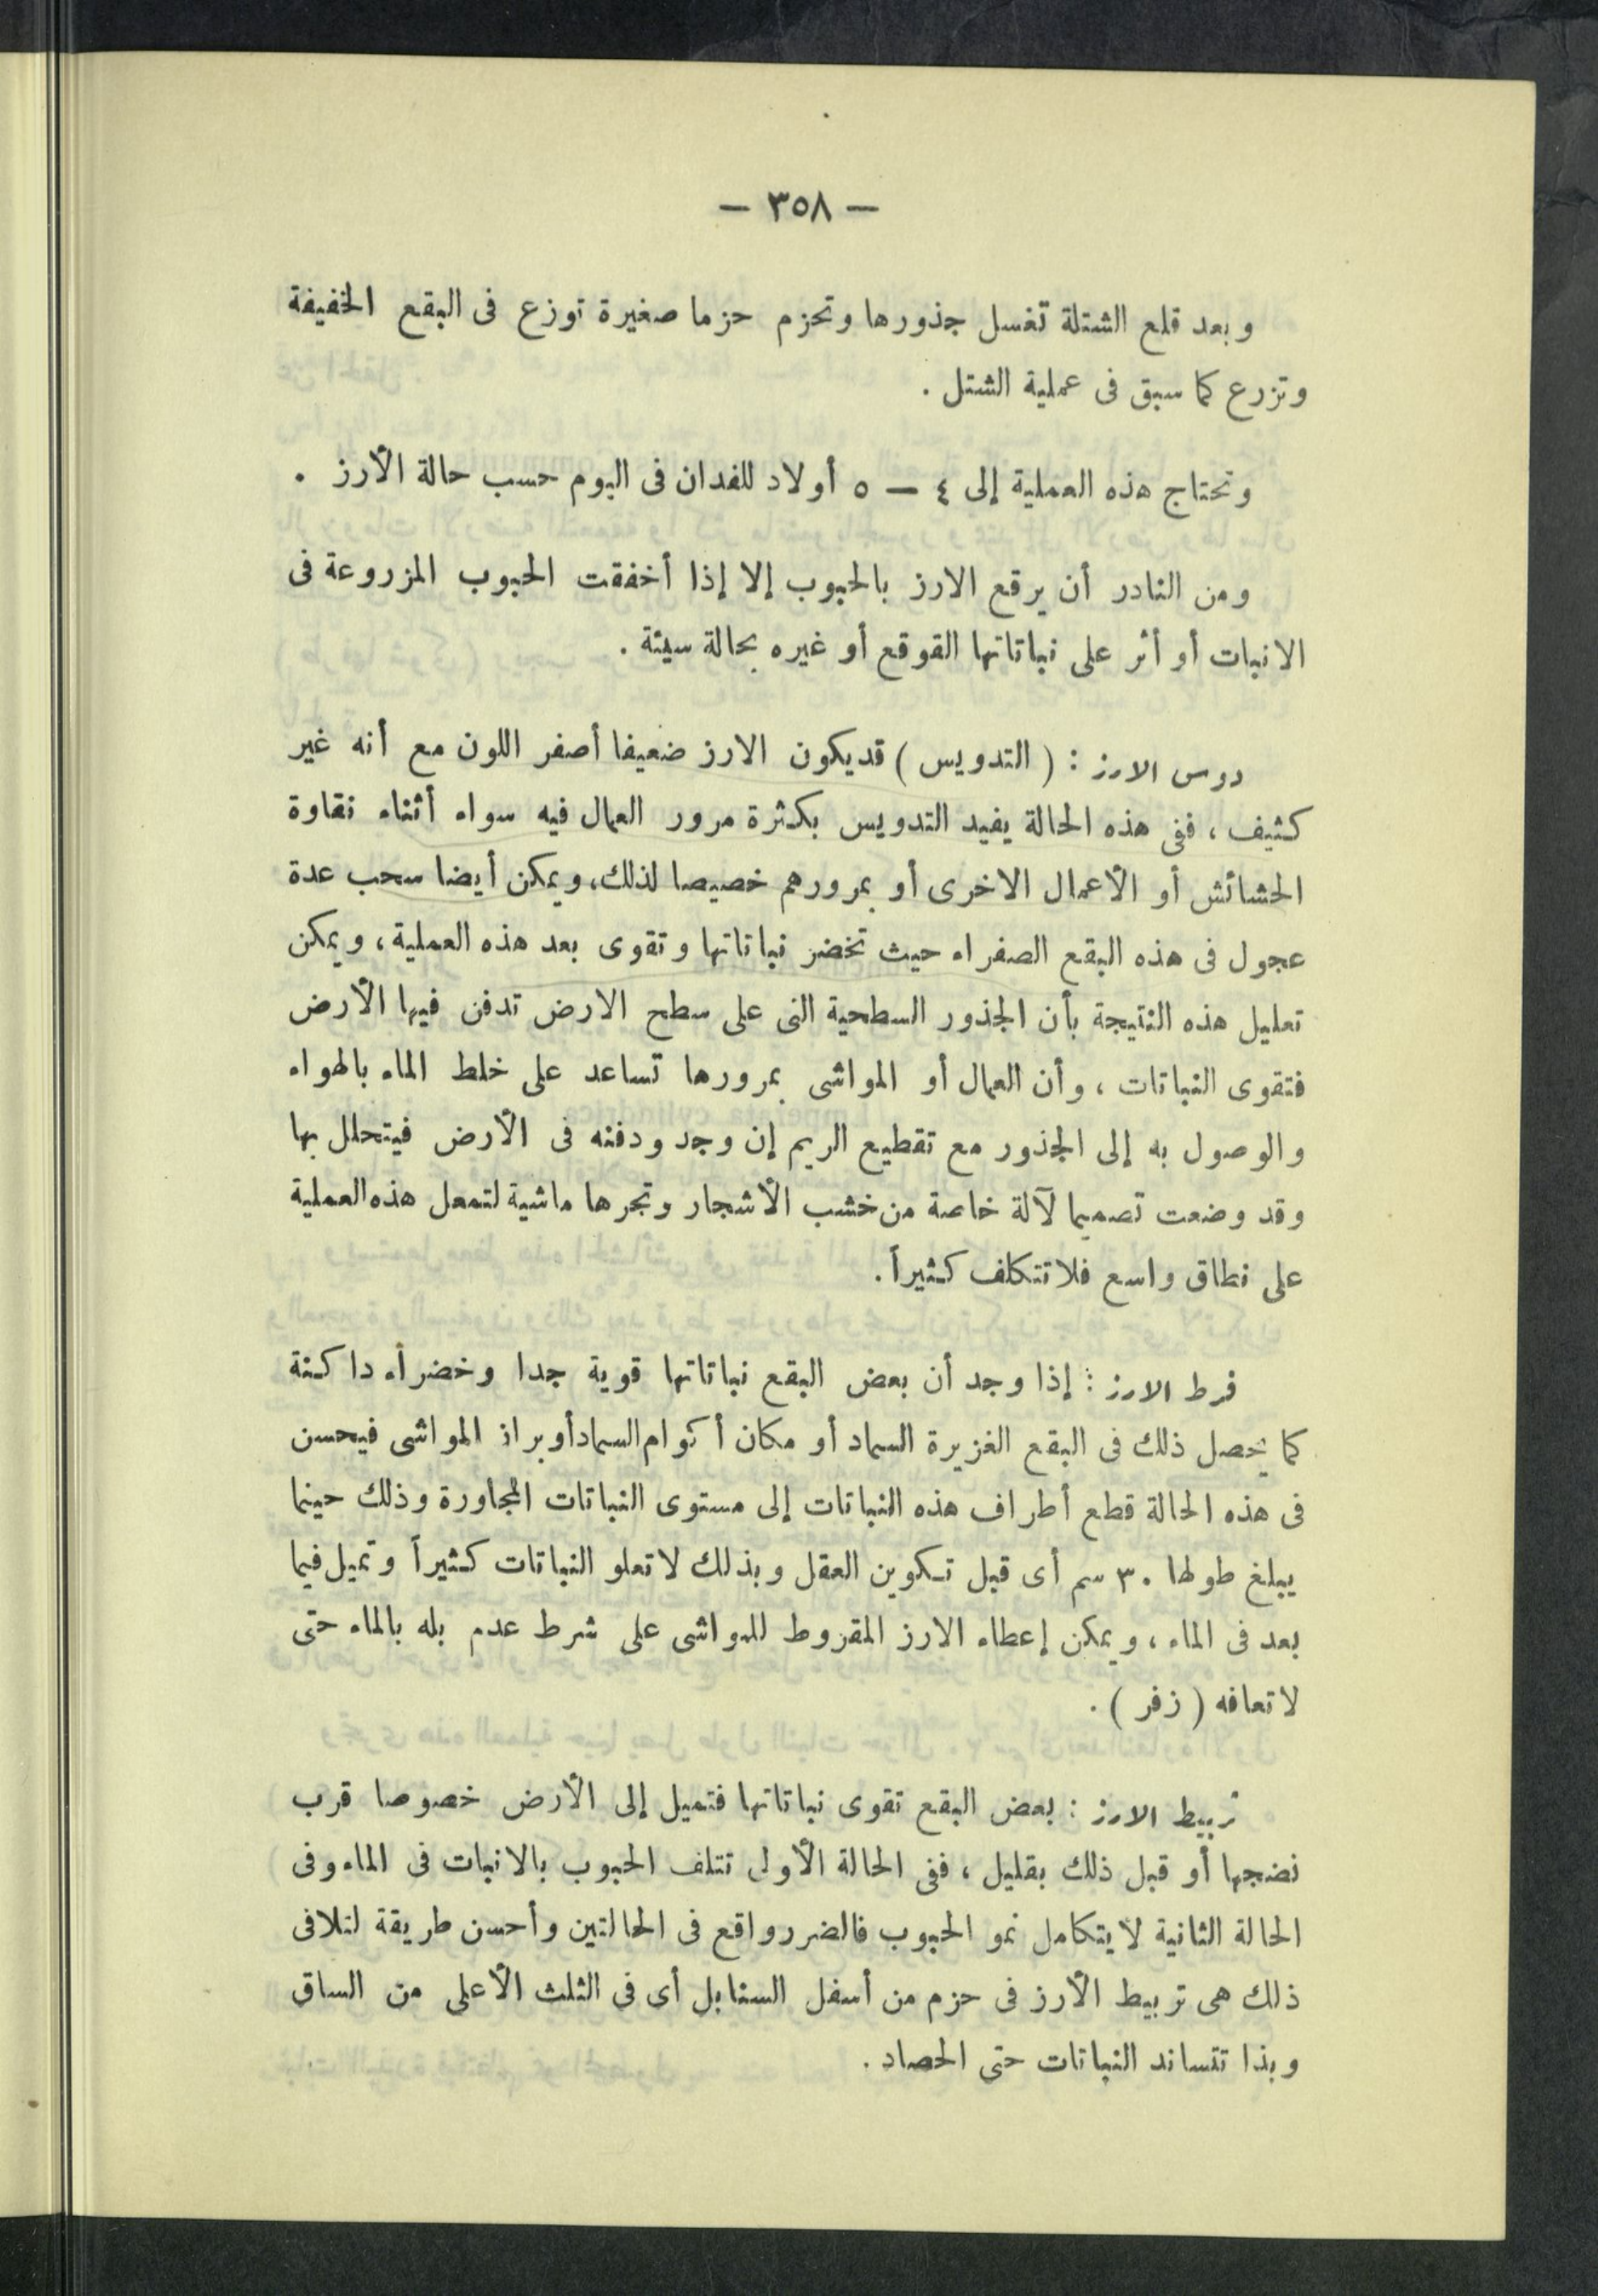 — ٣٥٨ —
وبعد قلع الشتلة تغسل جذورها وتحزم حزما صغيرة توزع فى البقع الخفيفة
وتزرع كما سبق فى عملية الشتل .
وتحتاج هذه العملية إلى ٤ — ٥ أولاد للفدان فى اليوم حسب حالة الأرز .
ومن النادر أن يرقع الارز بالحبوب إلا إذا أخفقت الحبوب المزروعة فى
الانبات أو أثر على نباتاتها القوقع أو غيره بحالة سيئة .
دوس الارز : ( التدويس ) قد يكون الارز ضعيفا أصفر اللون مع أنه غير
كثيف ، ففى هذه الحالة يفيد التدويس بكثرة مرور العمال فيه سواء أثناء نقاوة
الحشائش أو الأعمال الاخرى أو بمرورهم خصيصا لذلك، ويمكن أيضا سحب عدة
عجول فى هذه البقع الصفراء حيث تخضر نباتاتها وتقوى بعد هذه العملية ، ويمكن
تعليل هذه النتيجة بأن الجذور السطحية التى على سطح الارض تدفن فيها الأرض
فتقوى النباتات ، وأن العمال أو المواشى بمرورها تساعد على خلط الماء بالهواء
والوصول به إلى الجذور مع تقطيع الريم إن وجد ودفنه فى الأرض فيتحلل بها
وقد وضعت تصميما لآلة خاصة من خشب الأشجار وتجرها ماشية لتمعل هذه العملية
على نطاق واسع فلا تتكلف كثيراً .
قرط الارز : إذا وجد أن بعض البقع نباتاتها قوية جدا وخضراء داكنة
كما يحصل ذلك فى البقع الغزيرة السماد أو مكان أكوام السماد أو براز المواشى فيحسن
فى هذه الحالة قطع أطراف هذه النباتات إلى مستوى النباتات المجاورة وذلك حينما
يبلغ طولها ٣٠ سم أى قبل تكوين العقل وبذلك لا تعلو النباتات كثيراً وتميل فيما
بعد فى الماء ، ويمكن إعطاء الارز المقروط للمواشى على شرط عدم بله بالماء حتى
لا تعافه ( زفر ) .
تربيط الارز : بعض البقع تقوى نباتاتها فتميل إلى الأرض خصوصا قرب
نضجها أو قبل ذلك بقليل ، ففى الحالة الأولى تتلف الحبوب بالانبات فى الماء وفى
الحالة الثانية لا يتكامل نمو الحبوب فالضرر واقع فى الحالتين وأحسن طريقة لتلافى
ذلك هى تربيط الأرز فى حزم من أسفل السنابل أى فى الثلث الأعلى من الساق
وبذا تتساند النباتات حتى الحصاد .